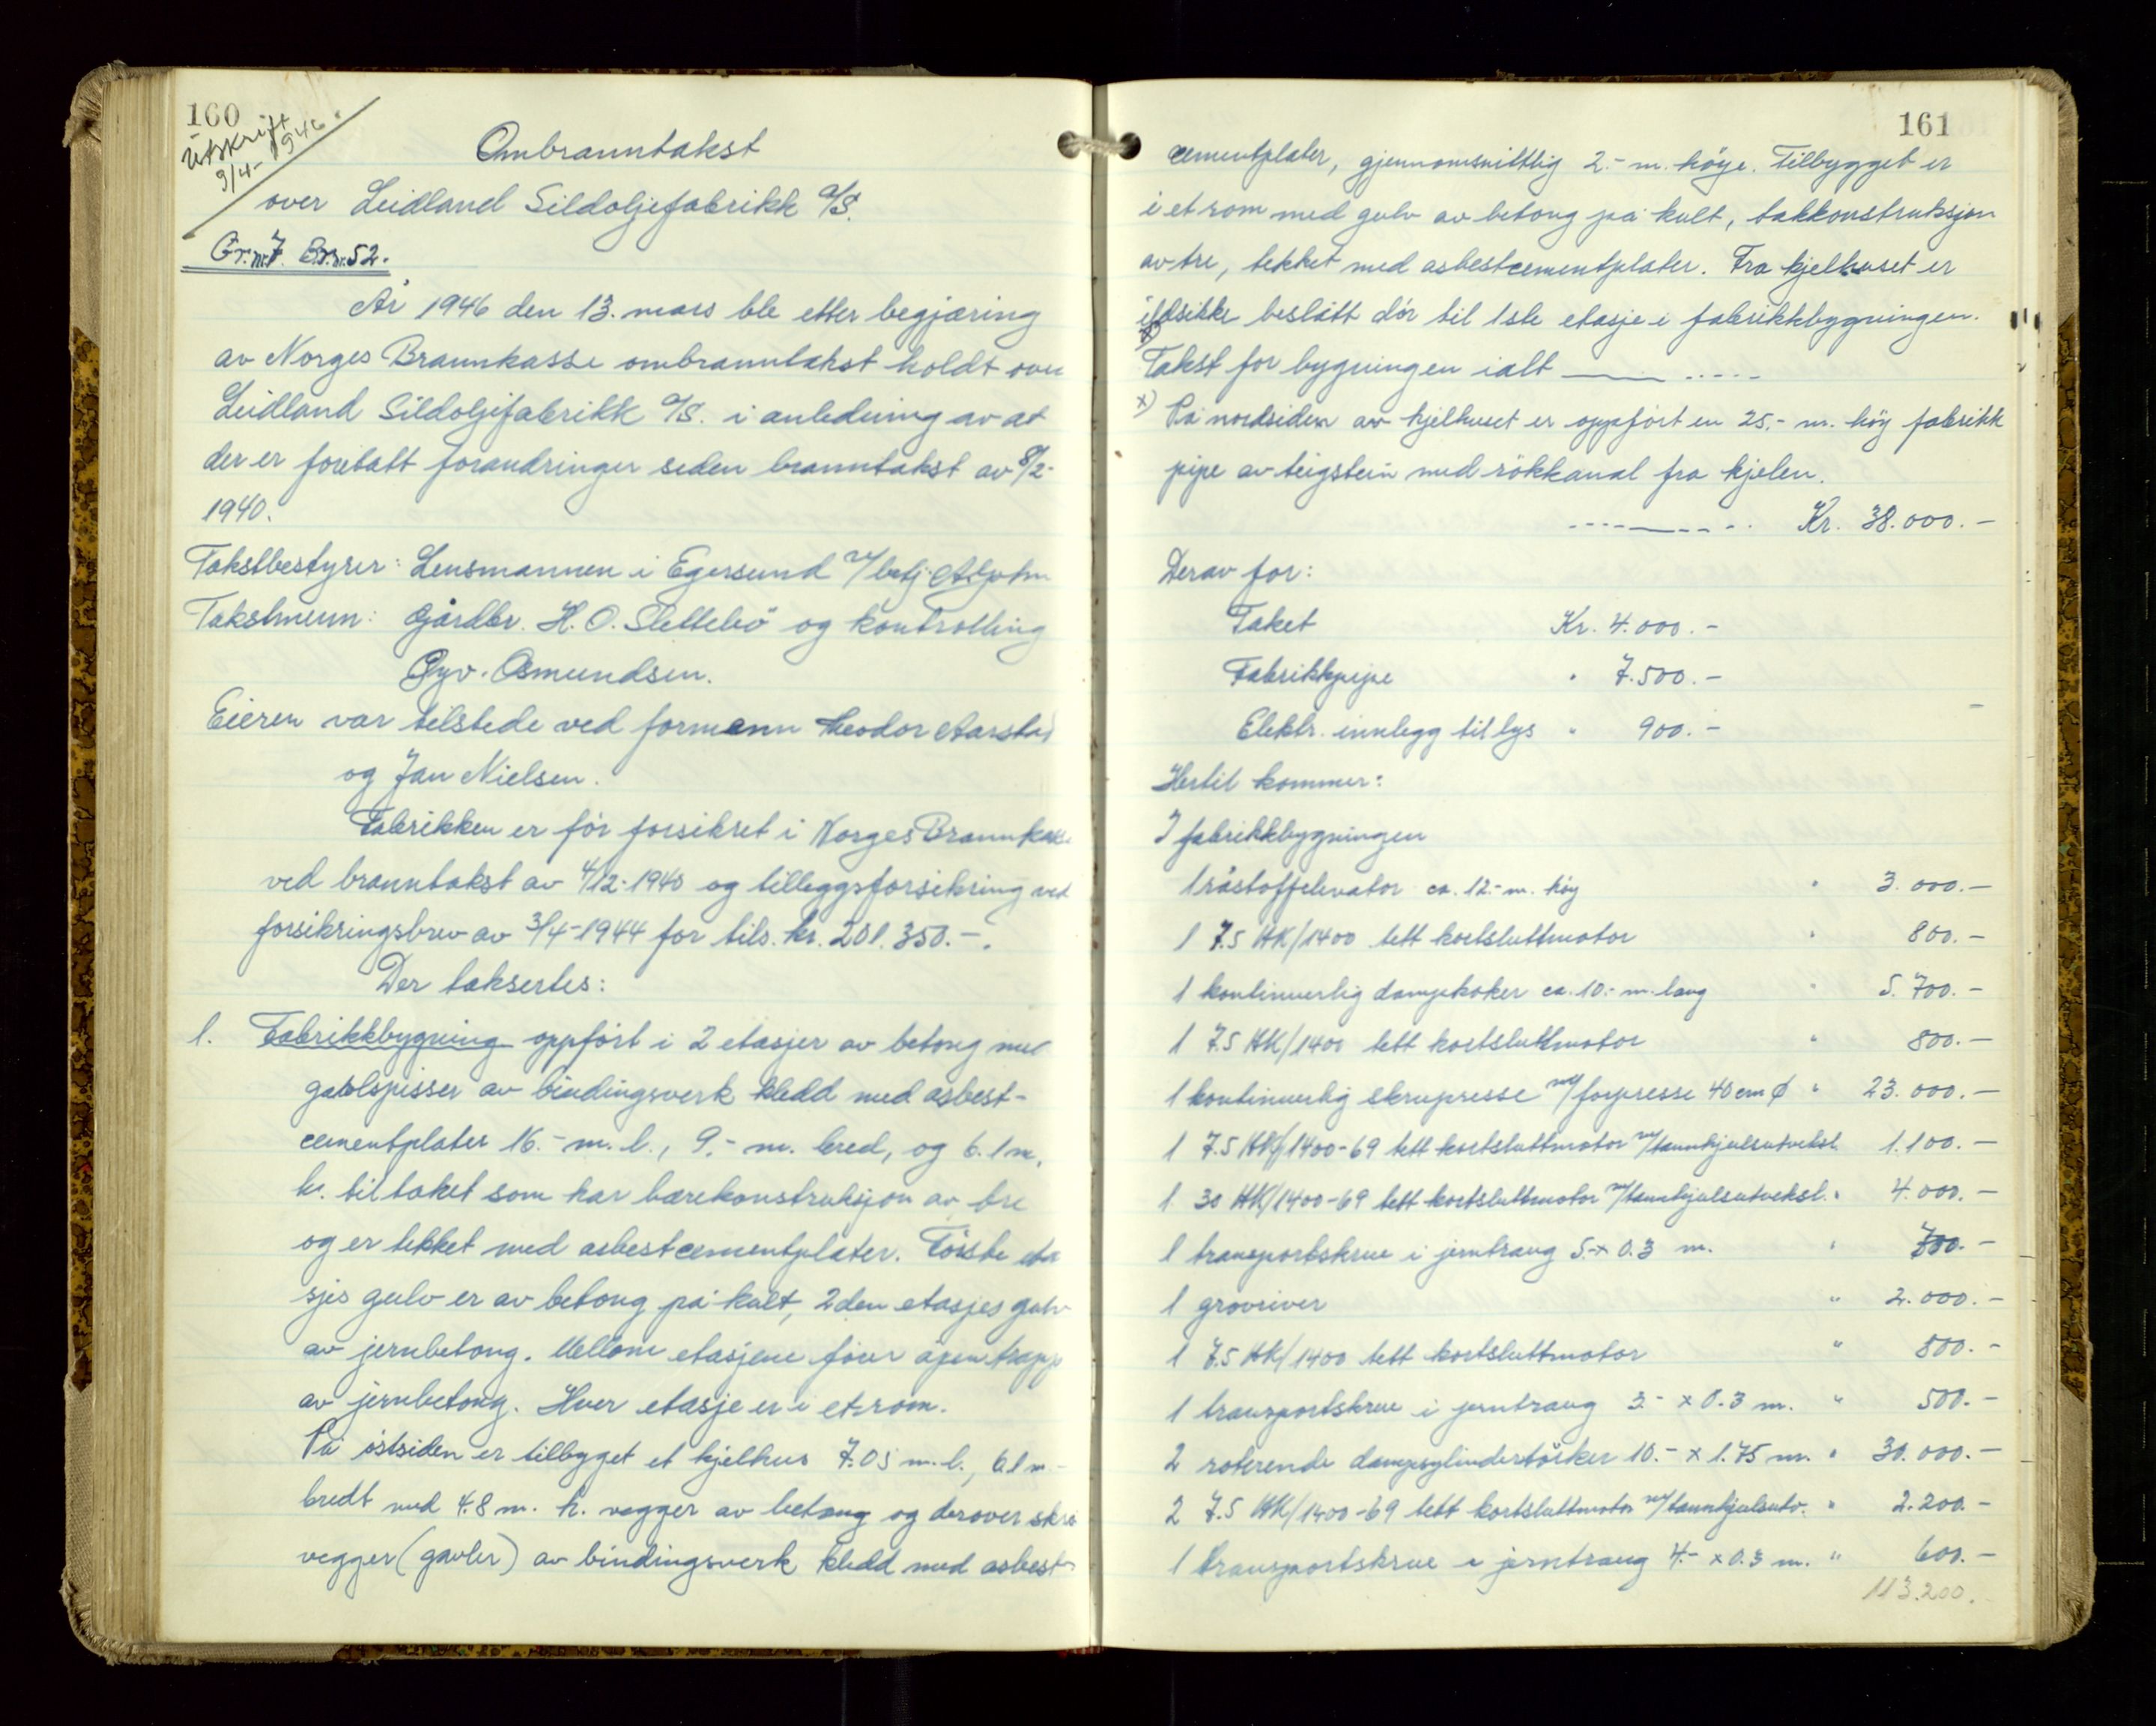 160
Utskrift
9/4- 1946.
Ombranntakst
over Leidland Sildoljefabrikk A/S.
Gr.nr. 7. Br.nr. 52.
År 1946 den 13. mars ble etter begjæring
av Norges Brannkasse ombranntakst holdt over
Leidland Sildoljefabrikk A/S. i anledning av at
der er foretatt forandringer siden branntakst av 8/2-
1940.
Takstbestyrer: Lensmannen i Egersund v/betj.
Takstmenn: Gårdbr. H. O. Slettebö og kontrolling
Gyv. Osmundsen.
Eieren var tilstede ved formann Theodor Aarstad
og Jan Nielsen.
Fabrikken er för forsikret i Norges Brannkasse
ved branntakst av 4/12-1940 og tilleggsforsikring ved
forsikringsbrev av 3/4-1944 for tils. kr. 201.350.-.
Der taksertes:
1. Fabrikkbygning oppfört i 2 etasjer av betong med
gavlspisser av bindingsverk kledd med asbest-
cementplater 16.- m. l., 9.- m. bred, og 6.1 m.
h. til taket som har bærekonstruksjon av tre
og er tekket med asbestcementplater. Förste eta
sjes gulv er av betong på kult, 2den etasjes gulv
av jernbetong. Mellom etasjene förer åpen trapp
av jernbetong. Hver etasje er i et rom.
På östsiden er tilbygget et kjelhus 7.05 m. l., 6.1 m-
bredt med 4.8 m. h. vegger av betong og derover skrå
vegger (gavler) av bindingsverk kledd med asbest-
161
cementplater, gjennomsnittlig 2.- m. höye. Tilbygget er
i et rom med gulv av betong på kult, takkonstruksjon
av tre, tekket med asbestcementplater. Fra kjelhuset er
ildsikker beslått dör til 1ste etasje i fabrikkbygningen.
x)
Takst for bygningen ialt
x) På nordsiden av kjelhuset er oppfört en 25.- m. höy fabrikk
pipe av teigstein med rökkanal fra kjelen.
Kr. 38.000.-
Derav for:
Taket Kr. 4.000.-
Fabrikkpipe " 7.500.-
Elektr. innlegg til lys " 900.-
Hertil kommer:
I fabrikkbygningen
1 råstoffelevator ca. 12.- m. höy " 3.000.-
1 7.5 HK/1400 tett kortsluttmotor " 800.-
1 kontinuerlig dampkoker ca. 10.- m. lang " 5.700.-
1 7.5 HK/1400 tett kortsluttmotor " 800.-
1 kontinuerlig skrupresse m/forpresse 40 cm ∅ " 23.000.-
1 7.5 HK/1400-69 tett kortsluttmotor m/tannhjulsutveksl. 1.100.-
1 30 HK/1400-69 tett kortsluttmotor m/tannhjulsutveksl. " 4.000.-
1 transportskrue i jerntraug 5.- x 0.3 m. " 700.-
1 grovriver " 2.000.-
1 7.5 HK/1400 tett kortsluttmotor " 800.-
1 transportskrue i jerntraug 3.- x 0.3 m. " 500.-
2 roterende dampsylindertörker 10.- x 1.75 m. " 30.000.-
2 7.5 HK/1400-69 tett kortsluttmotor m/tannhjulsutv. " 2.200.-
1 transportskrue i jerntraug 4.- x 0.3 m. " 600.-
113.200.